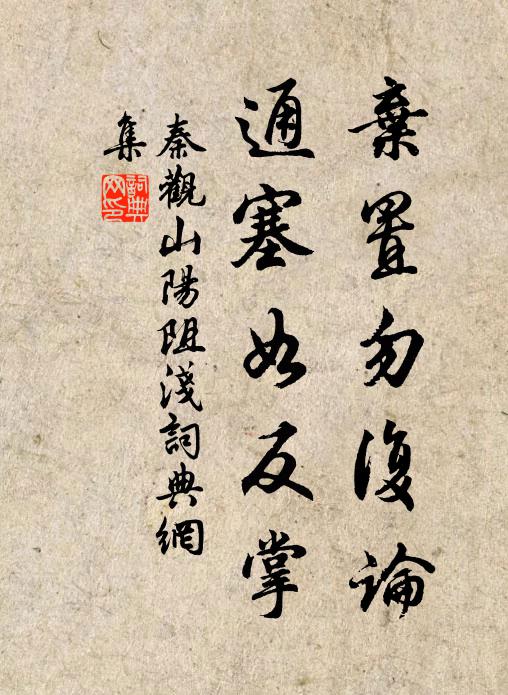 棄置勿復論
通塞如反掌
秦觀山陽阻淺詞典網
集
詞典網印